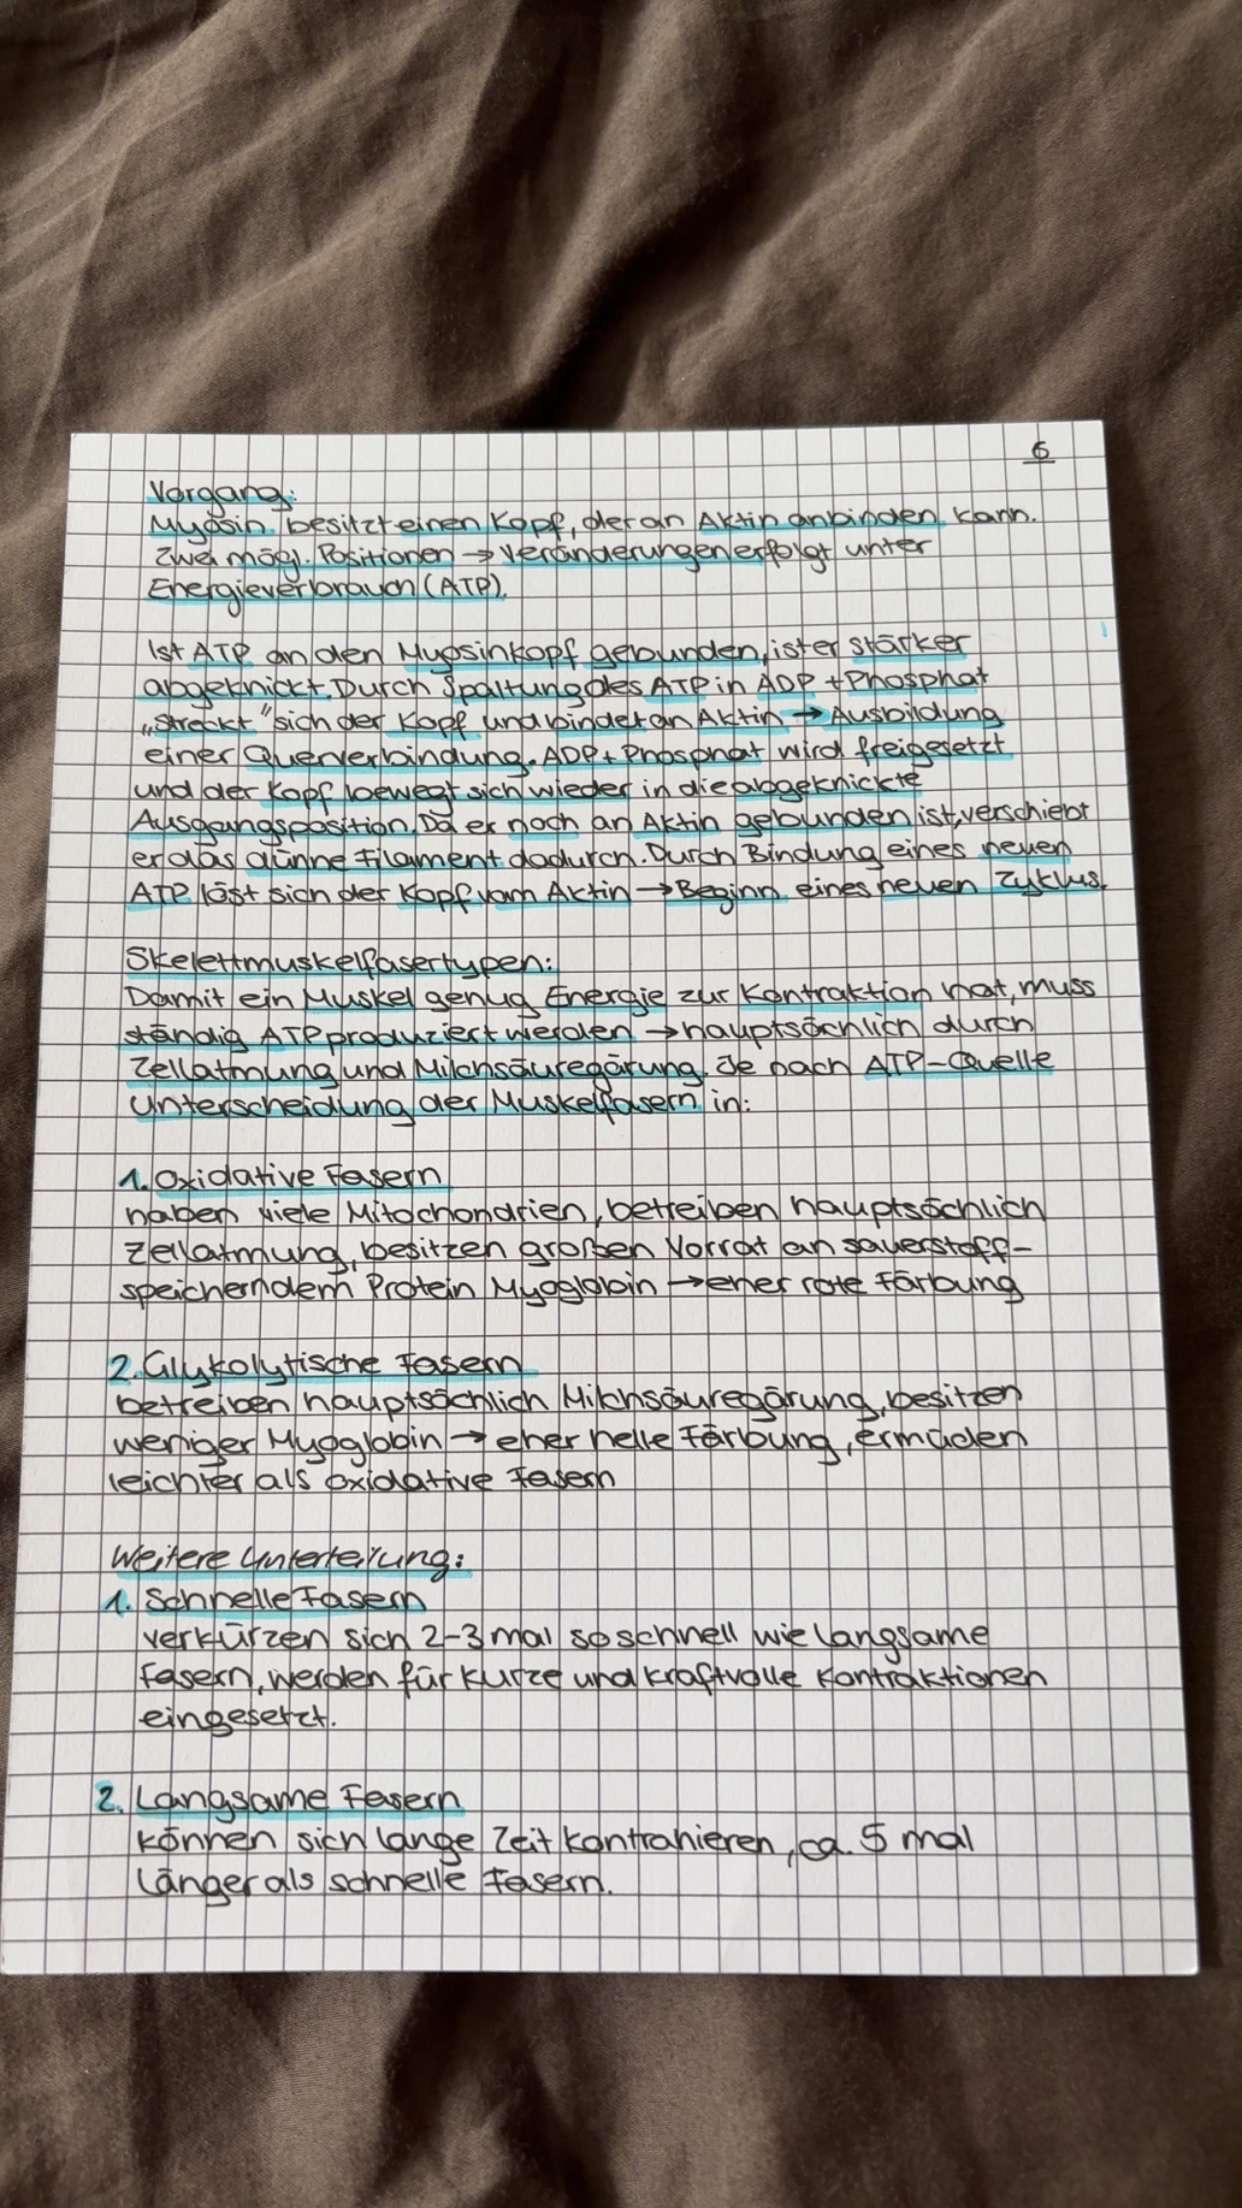 6
Vorgang:
Myosin besitzt einen Kopf, der an Aktin anbinden kann.
Zwei mögl. Positionen → Veränderungen erfolgt unter
Energieverbrauch (ATP).
Ist ATP an den Myosinkopf gebunden, ist er stärker
abgeknickt. Durch Spaltung des ATP in ADP + Phosphat
„streckt" sich der Kopf und bindet an Aktin → Ausbildung
einer Querverbindung. ADP + Phosphat wird freigesetzt
und der Kopf bewegt sich wieder in die abgeknickte
Ausgangsposition. Da er noch an Aktin gebunden ist, verschiebt
er das dünne Filament dadurch. Durch Bindung eines neuen
ATP löst sich der Kopf vom Aktin → Beginn eines neuen Zyklus.
Skelettmuskelfasertypen:
Damit ein Muskel genug Energie zur Kontraktion hat, muss
ständig ATP produziert werden → hauptsächlich durch
Zellatmung und Milchsäuregärung. Je nach ATP-Quelle
Unterscheidung der Muskelfasern in:
1. Oxidative Fasern
haben viele Mitochondrien, betreiben hauptsächlich
Zellatmung, besitzen großen Vorrat an sauerstoff-
speicherndem Protein Myoglobin → eher rote Färbung
2. Glykolytische Fasern
betreiben hauptsächlich Milchsäuregärung, besitzen
weniger Myoglobin → eher helle Färbung, ermüden
leichter als oxidative Fasern
Weitere Unterteilung:
1. Schnelle Fasern
verkürzen sich 2-3 mal so schnell wie langsame
Fasern, werden für kurze und kraftvolle Kontraktionen
eingesetzt.
2. Langsame Fasern
können sich lange Zeit kontrahieren, ca. 5 mal
länger als schnelle Fasern.